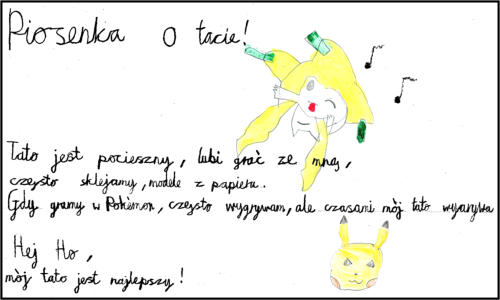 Piosenka o tacie!
Tato jest pocieszny, lubi grać ze mną,
często sklejamy, modele z papieru.
Gdy gramy w Pokémon, często wygrywam, ale czasami mój tato wygrywa
Hej Ho,
mój tato jest najlepszy!